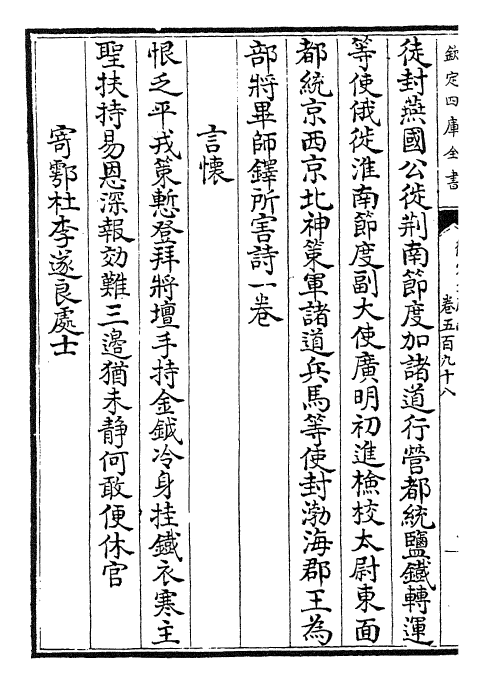 欽定四庫全書
卷五百九十八
徙封燕國公徙荆南節度加諸道行營都統鹽鐵轉運
等使俄徙淮南節度副大使廣明初進檢校太尉東面
都統京西京北神策軍諸道兵馬等使封渤海郡王為
部將畢師鐸所害詩一卷
言懷
恨乏平戎策慙登拜將壇手持金鉞冷身挂鐵衣寒主
聖扶持易恩深報効難三邉猶未静何敢便休官
寄鄠杜李遂良處士